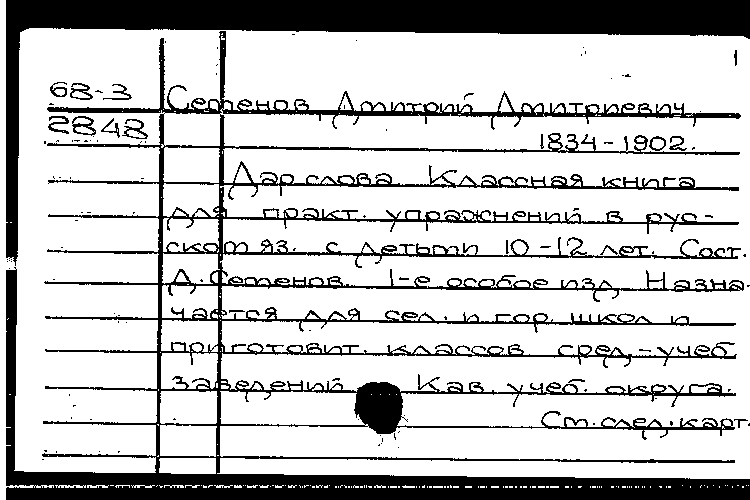 1
68-3
2848
Семенов, Дмитрий Дмитриевич,
1834-1902.
Дар слова. Классная книга
для практ. упражнений в рус-
ском яз. с детьми 10-12 лет. Сост.
Д. Семенов. 1-е особое изд. Назна-
чается для сел. и гор. школ и
приготовит. классов сред.-учеб.
заведений Кав. учеб. округа.
См. след. карт.